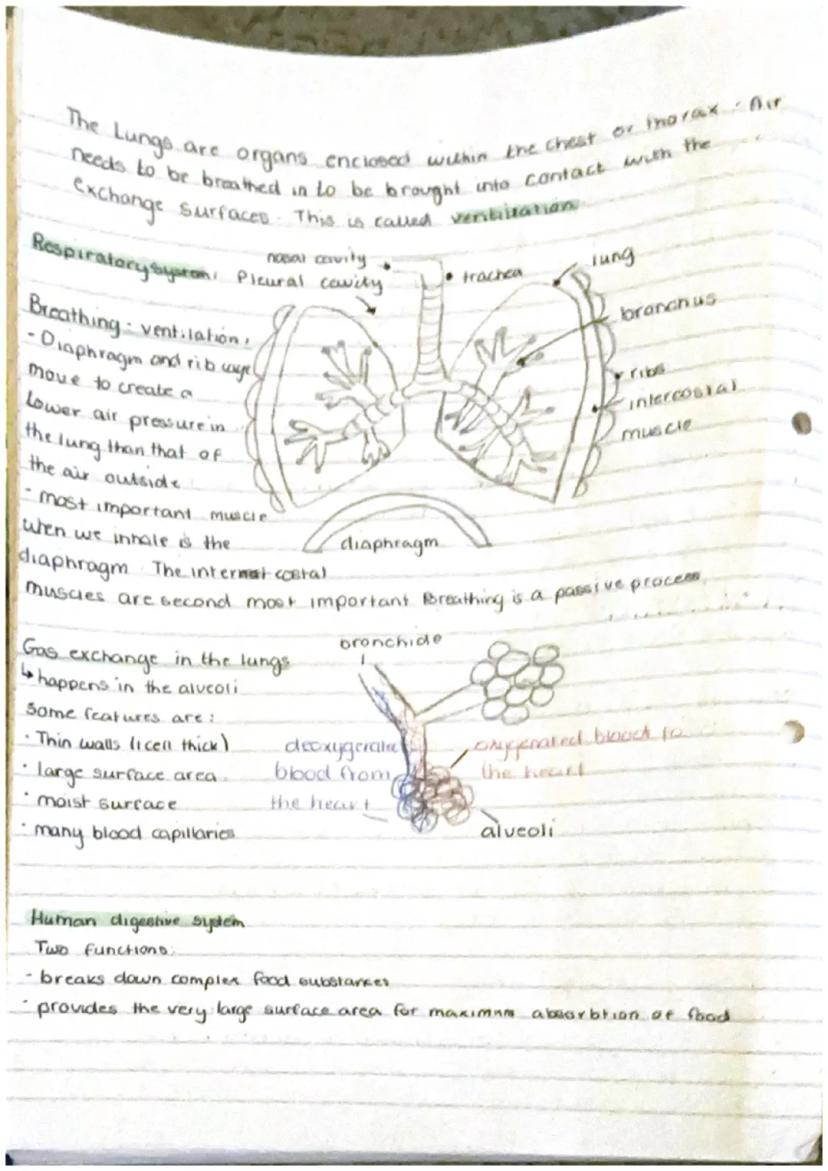 The Lungs are organs enclosed within the chest or thorax. Air
needs to be breathed in to be brought into contact with the
exchange surfaces. This is called ventilation
Respiratory system:
nasal cavity
Pleural cavity
trachea
lung
bronchus
ribs
intercostal
muscle
diaphragm
Breathing - ventilation:
- Diaphragm and rib cage
move to create a
lower air pressure in
the lung than that of
the air outside
- most important muscle
when we inhale is the
diaphragm. The costal
muscles are second most important Breathing is a passive process
Gas exchange in the lungs
↳ happens in the alveoli
Some features are:
· Thin walls (1 cell thick)
· large surface area
· moist surface
· many blood capillaries
bronchide
deoxygenated
blood from
the heart
oxygenated blood to
the heart
alveoli
Human digestive system
Two functions:
- breaks down complex food substances
· provides the very large surface area for maximum absorbtion of food